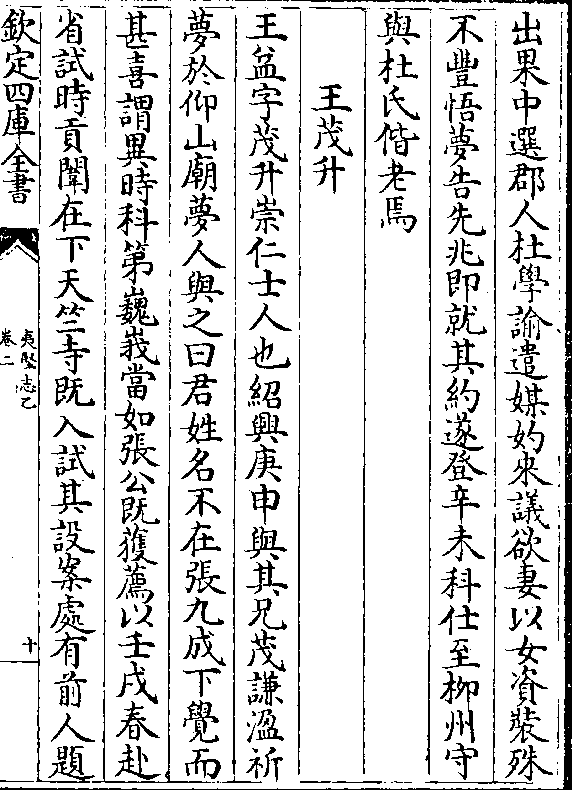 出果中選郡人杜學諭遣媒妁来議欲妻以女資裝殊
不豐悟夢告先兆即就其約遂登辛未科仕至柳州守
與杜氏偕老焉
王茂升
王益字茂升崇仁士人也紹興庚申與其兄茂謙溫祈
夢於仰山廟夢人與之曰君姓名不在張九成下覺而
甚喜謂異時科第巍峩當如張公既獲薦以壬戌春赴
省試時貢闈在下天竺寺既入試其設案處有前人題
欽定四庫全書
夷堅志乙
卷二
十